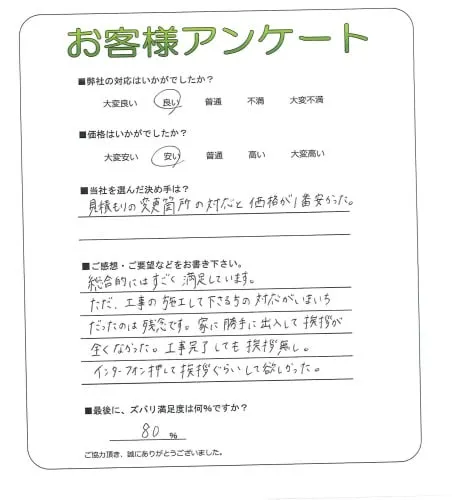 お客様アンケート
■弊社の対応はいかがでしたか？
大変良い 良い 普通 不満 大変不満
■価格はいかがでしたか？
大変安い 安い 普通 高い 大変高い
■当社を選んだ決め手は？
見積もりの変更箇所の対応と価格が1番安かった。
■ご感想・ご要望などをお書き下さい。
総合的にはすごく満足しています。
ただ、工事の施工して下さる方の対応がいまいち
だったのは残念です。家に勝手に出入して挨拶が
全くなかった。工事完了しても挨拶無し。
インターフォン押して挨拶ぐらいして欲しかった。
■最後に、ズバリ満足度は何%ですか？
80 %
ご協力頂き、誠にありがとうございました。